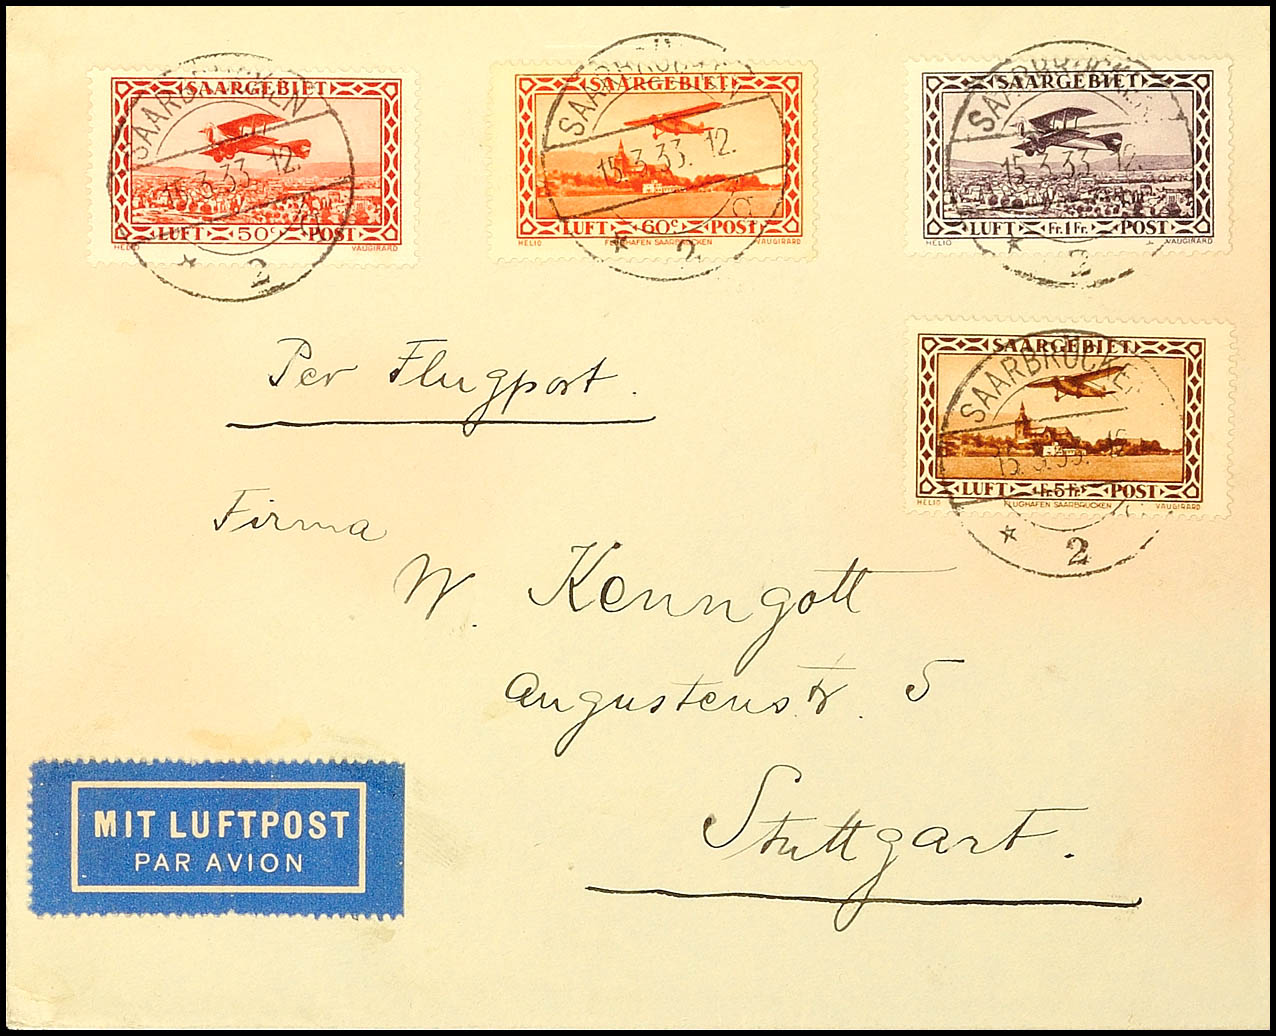 SAARGEBIET
LUFT 50c POST
HELIO VAUGIRARD
SAARBRÜCKEN
15.3.33. 12.
2
SAARGEBIET
LUFT 60c POST
HELIO FLUGHAFEN SAARBRÜCKEN VAUGIRARD
SAARBRÜCKEN
15.3.33. 12.
g
2
SAARGEBIET
LUFT Fr. 1 Fr. POST
HELIO VAUGIRARD
SAARBRÜCKEN
15.3.33. 12.
2
SAARGEBIET
LUFT Fr. 5 Fr. POST
HELIO FLUGHAFEN SAARBRÜCKEN VAUGIRARD
SAARBRÜCKEN
15.3.33. 12.
2
Per Flugport.
Firma
W. Kenngott
Augustenstr. 5
Stuttgart.
MIT LUFTPOST
PAR AVION